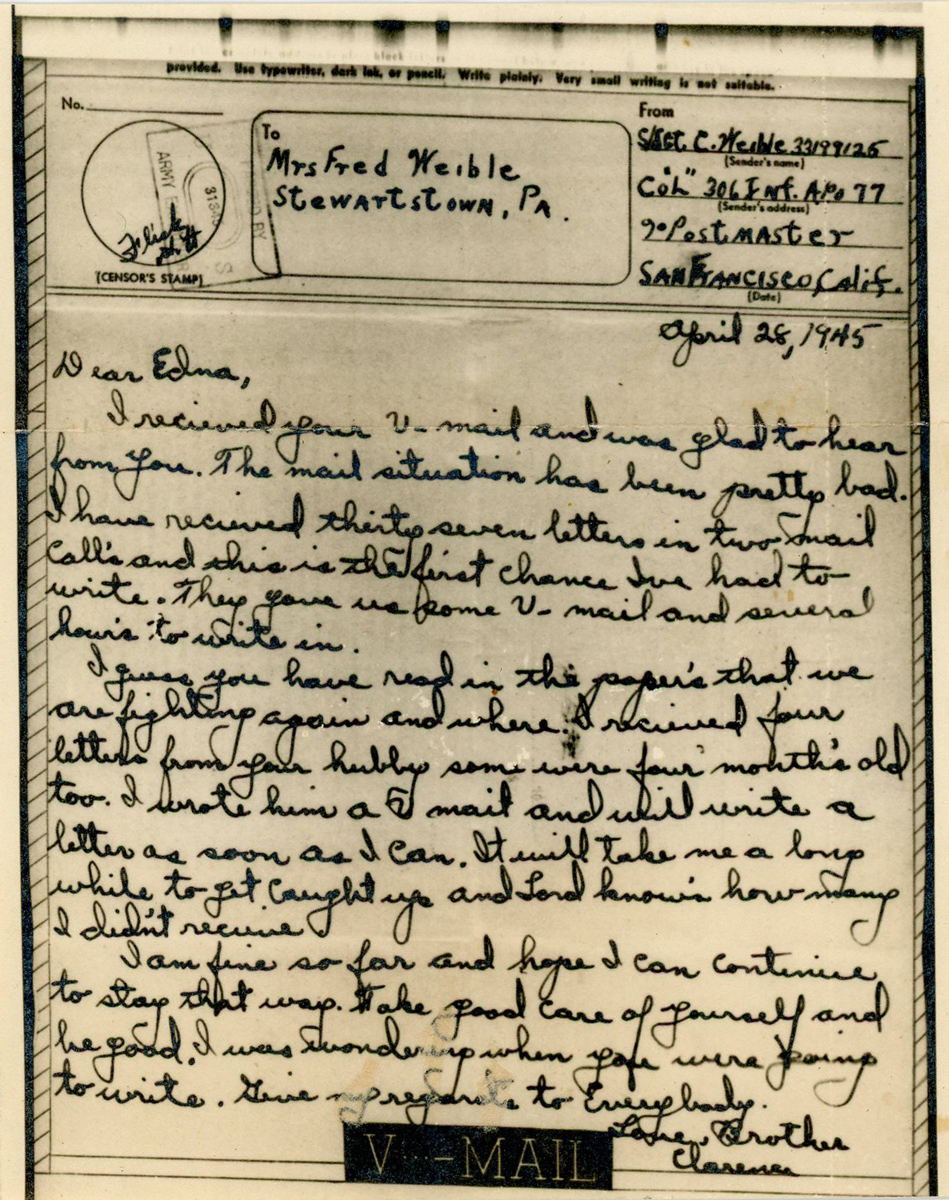 provided. Use typewriter, dark ink, or pencil. Write plainly. Very small writing is not suitable.
No.
(CENSOR'S STAMP)
ARMY
To
Mrs Fred Weible
Stewartstown, Pa.
From
S/Sgt. C. Weible 33199126
(Sender's name)
Co "L" 306 Inf. APO 77
(Sender's address)
% Postmaster
San Francisco, Calif.
(Date)
April 28, 1945
Dear Edna,
I recieved your V-mail and was glad to hear
from you. The mail situation has been pretty bad.
I have recieved thirty seven letters in two mail
call's and this is the first chance I've had to
write. They gave us some V-mail and several
hour's to write in.
I guess you have read in the paper's that we
are fighting again and where. I recieved four
letters from your hubby some were four month's old
too. I wrote him a V mail and will write a
letter as soon as I can. It will take me a long
while to get caught up and Lord know's how many
I didn't recieve.
I am fine so far and hope I can continue
to stay that way. Take good care of yourself and
be good. I was wondering when you were going
to write. Give my regards to Everybody.
Love, Brother
Clarence
V···–MAIL